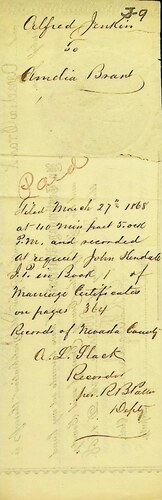 J-9
Alfred Jenkin
To
Amelia Brant
Paid
Filed March 27th 1868
at 40 min past 5 o'ck
P.M. and recorded
at request John Kendall
J.P. in Book 1 of
Marriage Certificates
on pages 364
Records of Nevada County
A. L. Flack
Recorder
per. R B
Depty